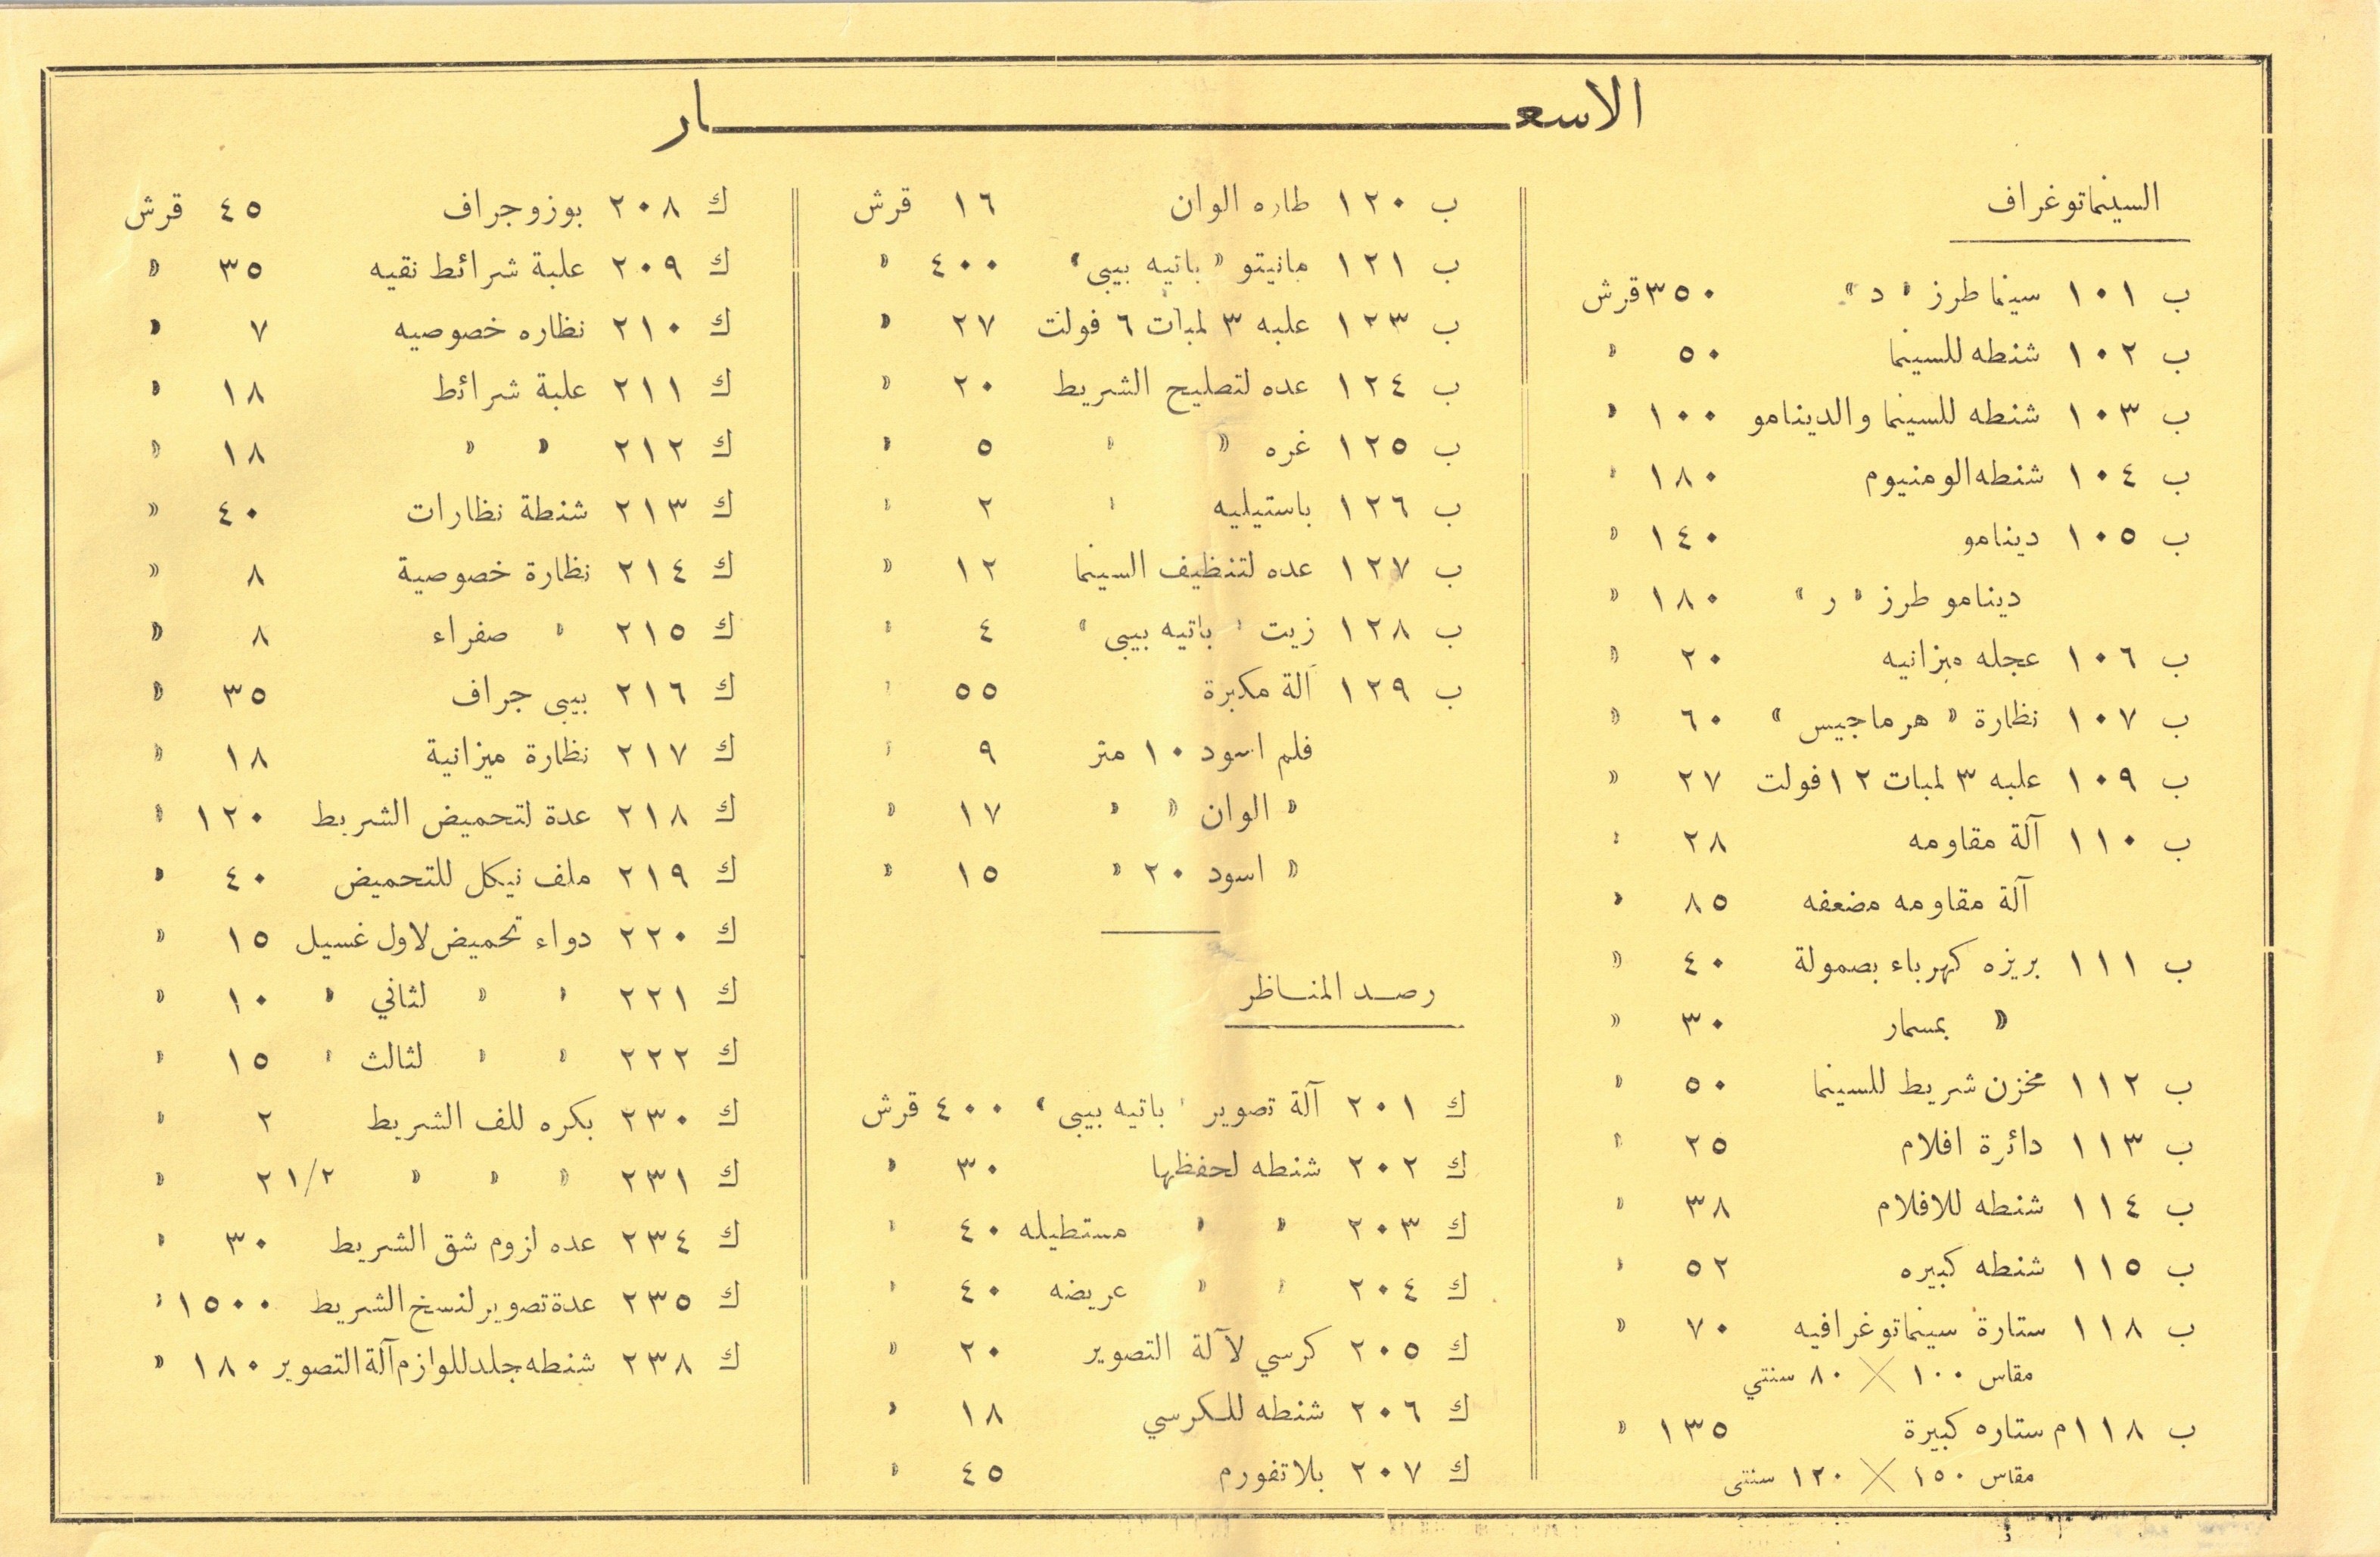 الاسعار
السينماتوغراف
ب ١٠١ سينما طرز « د » ٣٥٠ قرش
ب ١٠٢ شنطه للسينما ٥٠ »
ب ١٠٣ شنطه للسينما والدينامو ١٠٠ »
ب ١٠٤ شنطه الومنيوم ١٨٠ »
ب ١٠٥ دينامو ١٤٠ »
دينامو طرز « ر » ١٨٠ »
ب ١٠٦ عجله ميزانيه ٢٠ »
ب ١٠٧ نظارة « هرماجيس » ٦٠ »
ب ١٠٩ علبه ٣ لمبات ١٢ فولت ٢٧ »
ب ١١٠ آلة مقاومه ٢٨ »
آلة مقاومه مضعفه ٨٥ »
ب ١١١ بريزه كهرباء بصمولة ٤٠ »
» بمسمار ٣٠ »
ب ١١٢ مخزن شريط للسينما ٥٠ »
ب ١١٣ دائرة افلام ٢٥ »
ب ١١٤ شنطه للافلام ٣٨ »
ب ١١٥ شنطه كبيره ٥٢ »
ب ١١٨ ستارة سينماتوغرافيه ٧٠ »
مقاس ١٠٠ × ٨٠ سنتي
ب ١١٨م ستاره كبيرة ١٣٥ »
مقاس ١٥٠ × ١٢٠ سنتى
ب ١٢٠ طاره الوان ١٦ قرش
ب ١٢١ مانيتو « باتيه بيبى » ٤٠٠ »
ب ١٢٣ علبه ٣ لمبات ٦ فولت ٢٧ »
ب ١٢٤ عده لتصليح الشريط ٢٠ »
ب ١٢٥ غره » » ٥ »
ب ١٢٦ باستيليه » ٢ »
ب ١٢٧ عده لتنظيف السينما ١٢ »
ب ١٢٨ زيت « باتيه بيبى » ٤ »
ب ١٢٩ آلة مكبرة ٥٥ »
فلم اسود ١٠ متر ٩ »
» الوان » » ١٧ »
» اسود ٢٠ » ١٥ »
رصد المناظر
ك ٢٠١ آلة تصوير « باتيه بيبى » ٤٠٠ قرش
ك ٢٠٢ شنطه لحفظها ٣٠ »
ك ٢٠٣ » » مستطيله ٤٠ »
ك ٢٠٤ » » عريضه ٤٠ »
ك ٢٠٥ كرسي لآلة التصوير ٢٠ »
ك ٢٠٦ شنطه للكرسي ١٨ »
ك ٢٠٧ بلاتفورم ٤٥ »
ك ٢٠٨ بوزوجراف ٤٥ قرش
ك ٢٠٩ علبة شرائط نقيه ٣٥ »
ك ٢١٠ نظاره خصوصيه ٧ »
ك ٢١١ علبة شرائط ١٨ »
ك ٢١٢ » » ١٨ »
ك ٢١٣ شنطة نظارات ٤٠ »
ك ٢١٤ نظارة خصوصية ٨ »
ك ٢١٥ » صفراء ٨ »
ك ٢١٦ بيبى جراف ٣٥ »
ك ٢١٧ نظارة ميزانية ١٨ »
ك ٢١٨ عدة لتحميض الشريط ١٢٠ »
ك ٢١٩ ملف نيكل للتحميض ٤٠ »
ك ٢٢٠ دواء تحميض لاول غسيل ١٥ »
ك ٢٢١ » » لثاني » ١٠ »
ك ٢٢٢ » » لثالث » ١٥ »
ك ٢٣٠ بكره للف الشريط ٢ »
ك ٢٣١ » » » ٢١/٢ »
ك ٢٣٤ عده لزوم شق الشريط ٣٠ »
ك ٢٣٥ عدة تصوير لنسخ الشريط ١٥٠٠ »
ك ٢٣٨ شنطه جلد للوازم آلة التصوير ١٨٠ »